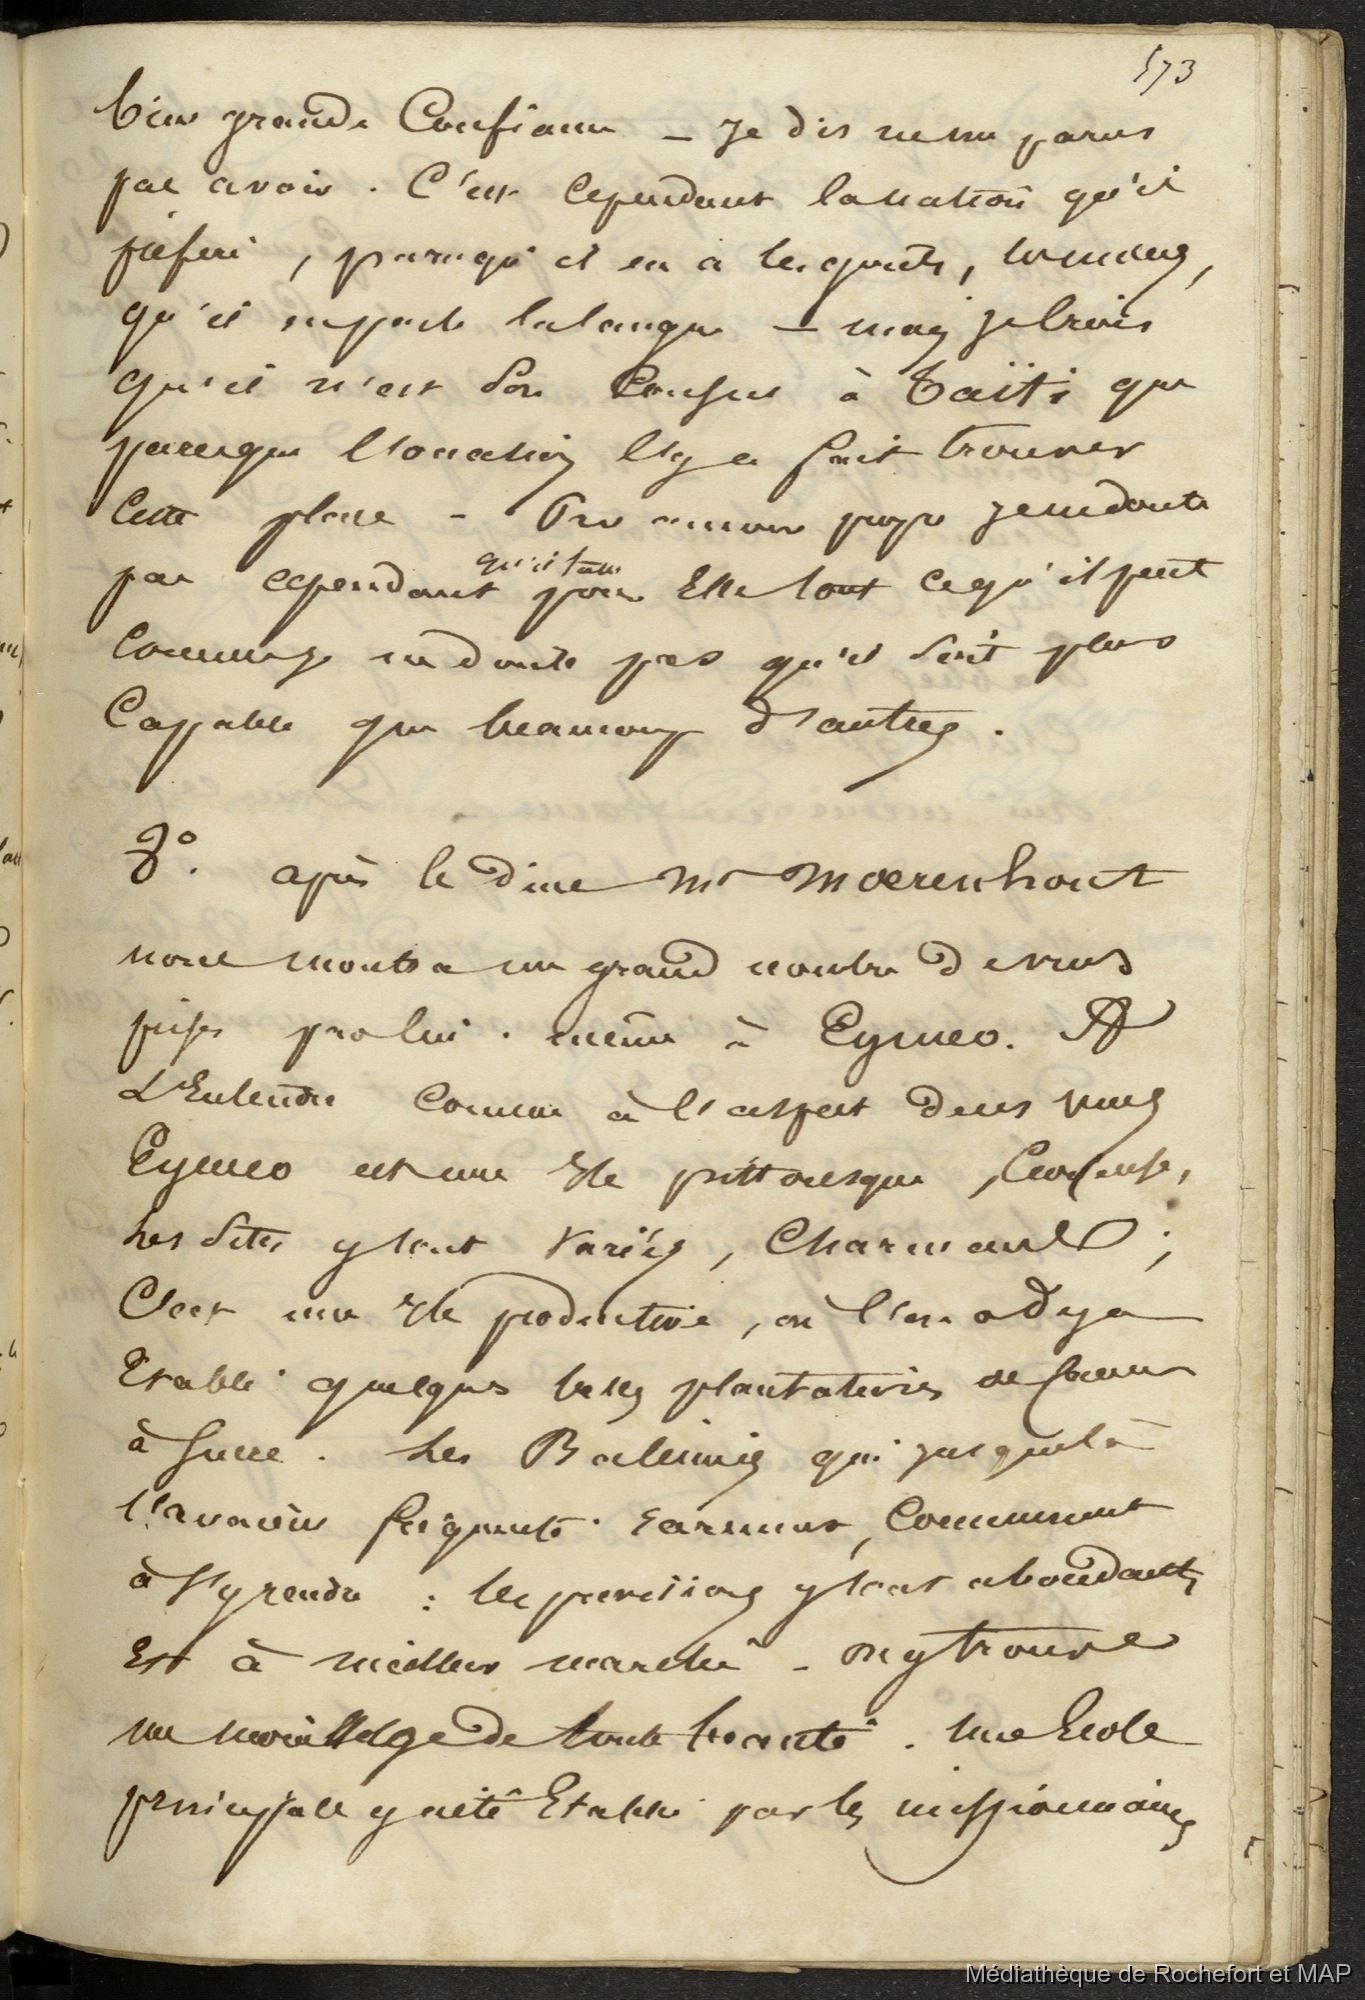 573
bien grande Confiance – je dis ne me parus
pas avoir. C'est cependant la nation qu'il
préfére, parcequ'il en a les gouts, les mœurs,
qu'il en parle la langue – mais je crois
qu'il n'est son Consul à Taïti que
parceque l'occasion l'y a fait trouver
Cette place – Je ne doute
pas cependant qu'il fasse pour Elle tout ce qu'il peut
Comme je ne doute pas qu'il soit plus
Capable que beaucoup d'autres.
8°. après le dine Mr Moerenhout
nous montra un grand nombre de vues
prises par lui. même à Eymeo. A
L'Entendre comme à l'aspect de ses vues
Eymeo est une Ile pittoresque,
Les Sites y sont variés, Charmants;
C'est une Ile productive, où l'on a deja
Etabli quelques belles plantations de Cannes
à Sucre. Les Baleiniers qui jusque là
l'avaient fréquenté rarement, Commencent
à s'y rendre : les provisions y sont abondantes
Et à meilleur marché – on y trouve
un mouillage de toute beauté. Une Ecole
principale y a été Etablie par les missionnaires
Médiathèque de Rochefort et MAP